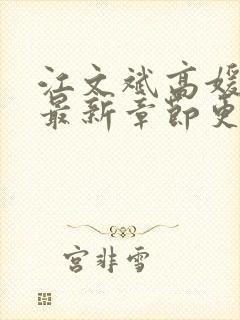 江文斌高媛
最新章节更
宫非雪